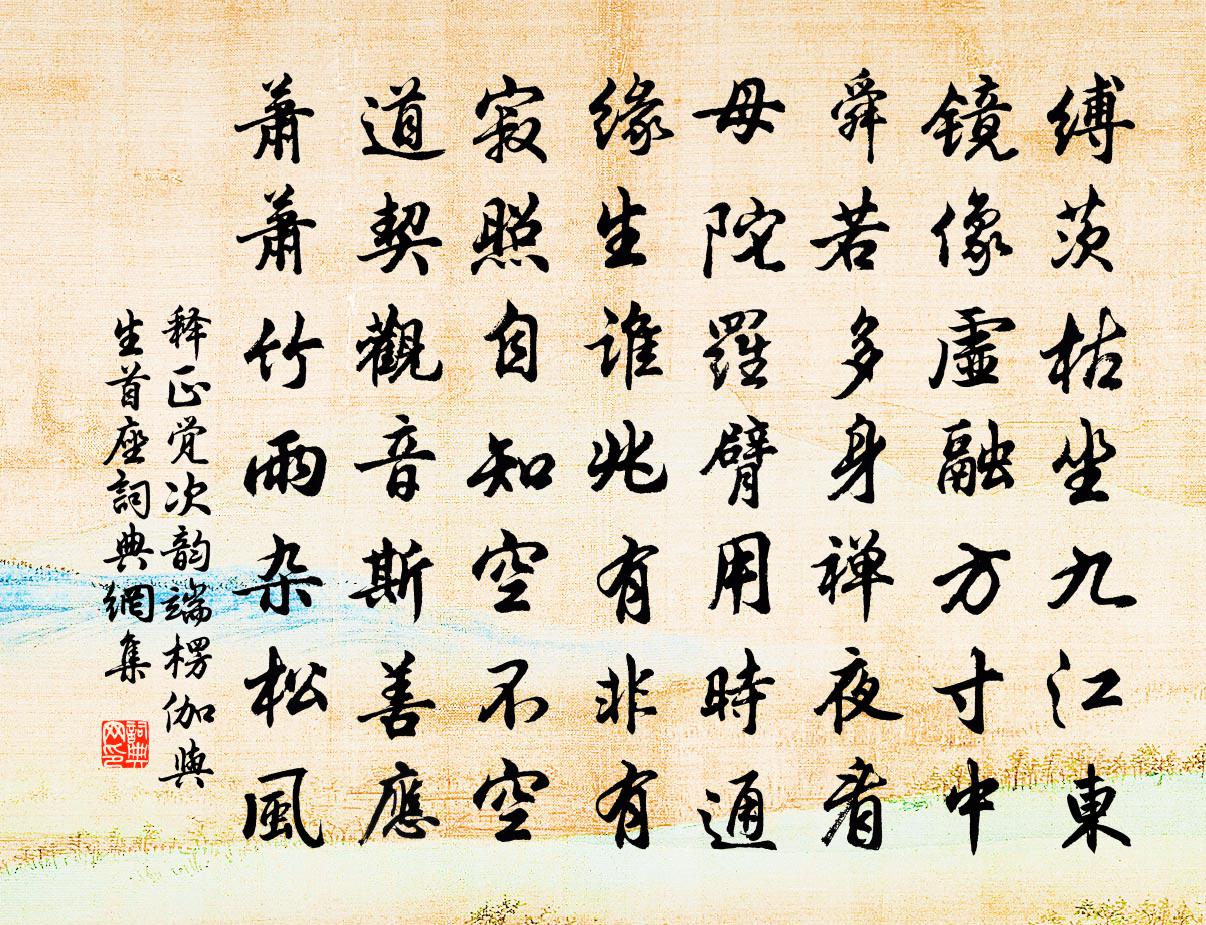 縛茨枯坐九江東
镜像虛融方寸中
舜若多身禅夜看
母陀羅臂用時通
緣生谁兆有非有
寂照自知空不空
道契觀音斯善應
萧萧竹雨杂松風
释正觉次韵端楞伽與
生首座詞典網集
詞典
网印